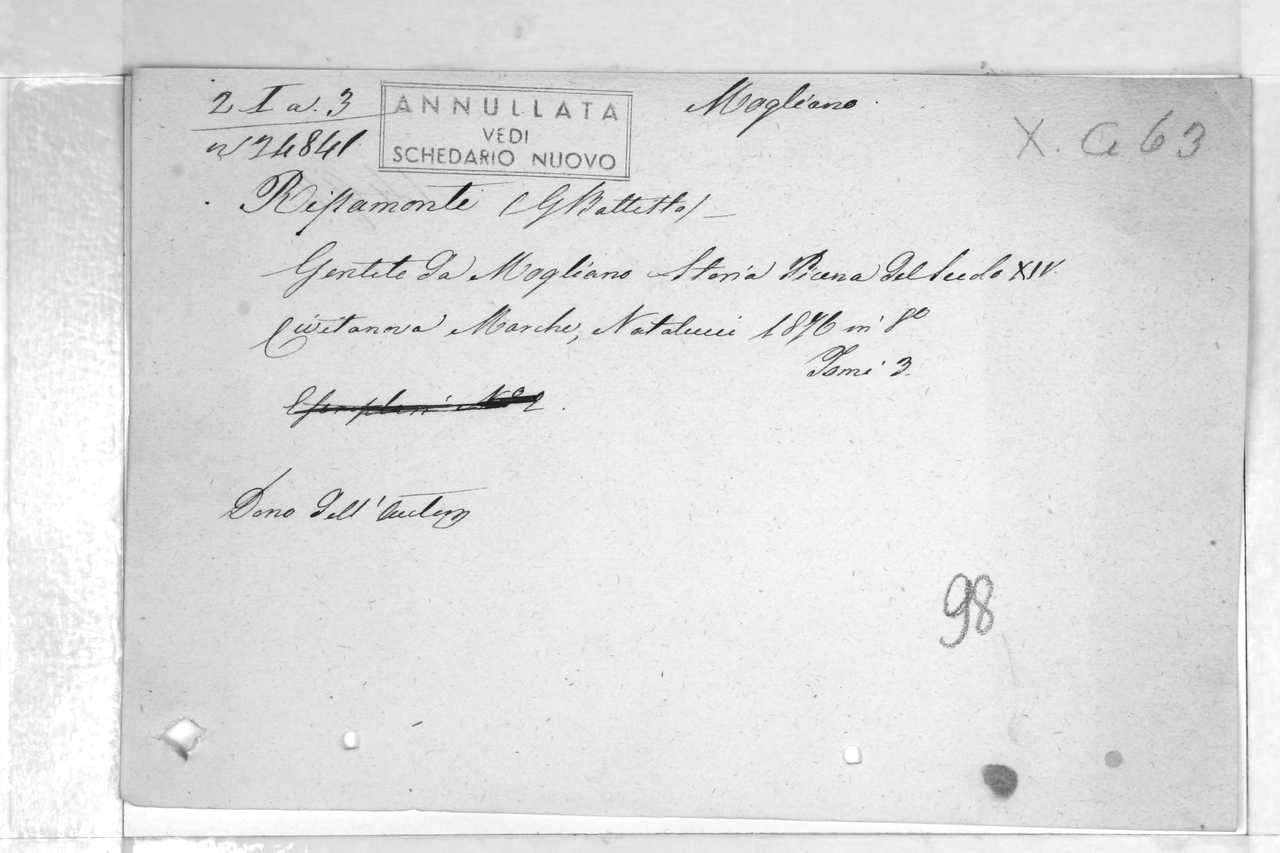 2 I a. 3
ANNULLATA
VEDI
SCHEDARIO NUOVO
Mogliano.
X. a 63
n° 24841
Ripamonte (G Battista) —
Gentile da Mogliano Storia Picena del Secolo XIV.
Civitanova Marche, Natalucci 1876 in 8°
Tomi 3.
Esemplari N° 2.
Dono dell'Autore
98